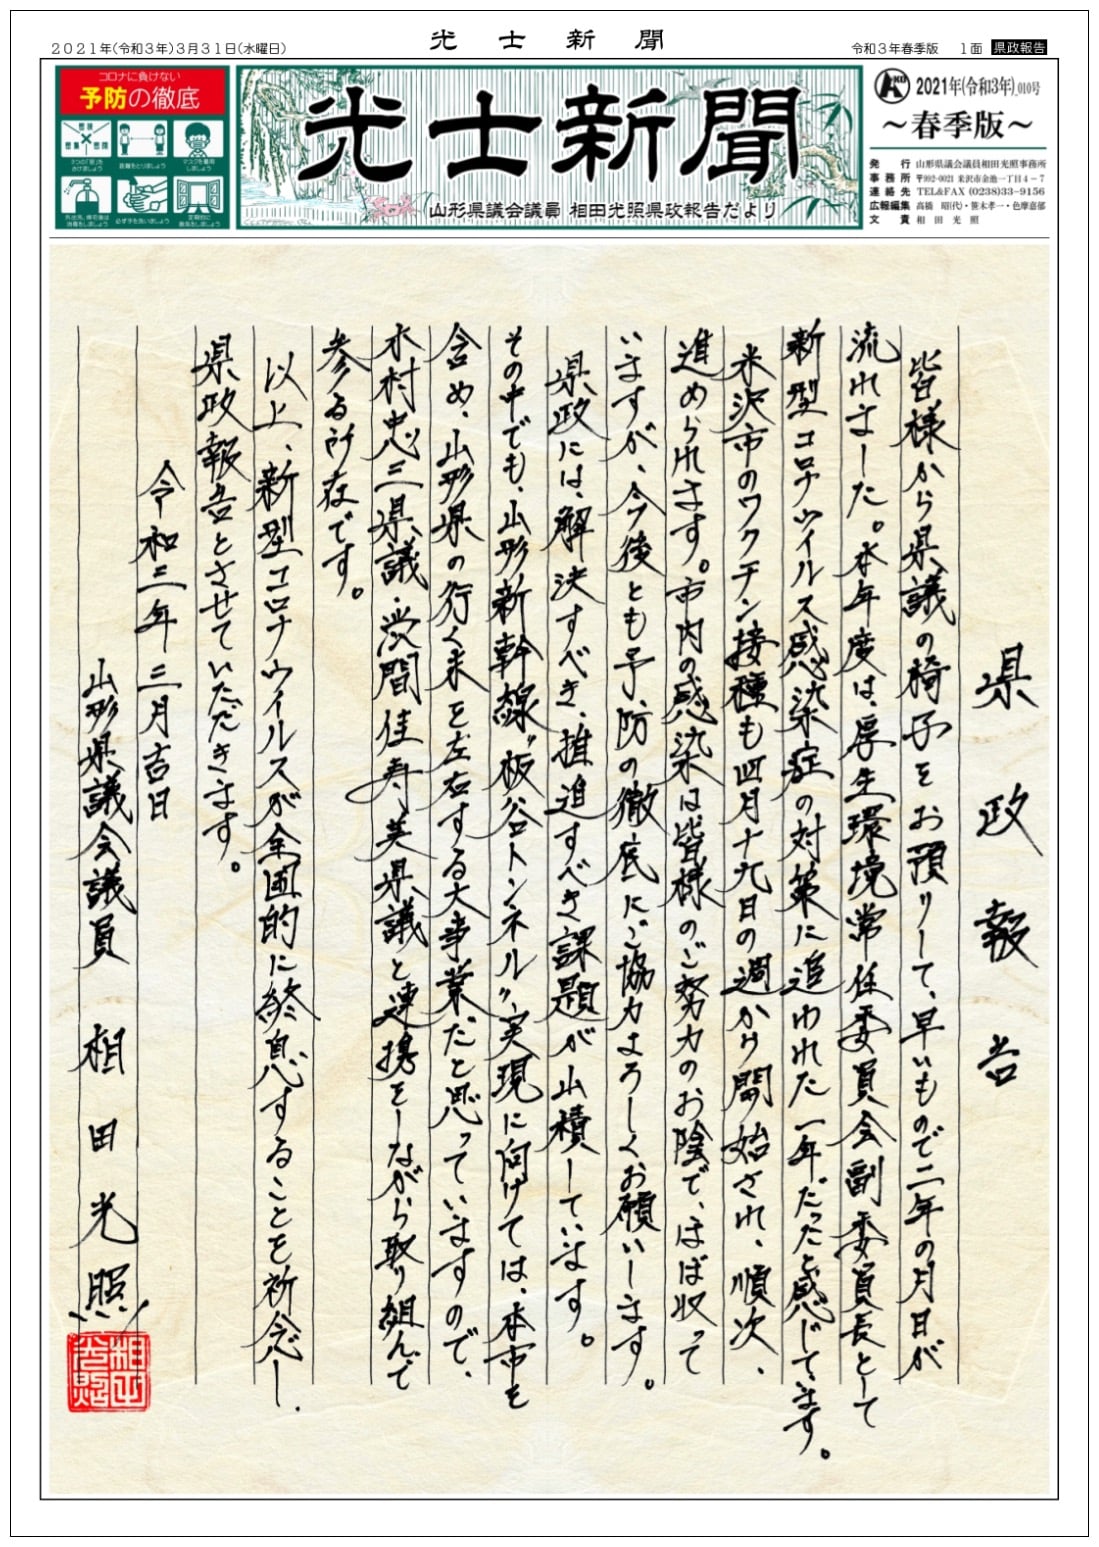 2021年(令和3年)3月31日(水曜日)
光士新聞
令和3年春季版　1面　県政報告
コロナに負けない
予防の徹底
密閉
密集 密接
3つの「密」を
さけましょう
距離をとりましょう
マスクを着用
しましょう
必ず手を洗いましょう
定期的に
換気をしましょう
光士新聞
山形県議会議員 相田光照県政報告だより
2021年(令和3年)_010号
～春季版～
発行 山形県議会議員相田光照事務所
事務所 〒992-0021 米沢市金池一丁目4－7
連絡先 TEL&FAX (0238)33-9156
広報編集 高橋 昭(代)・笹木孝一・色摩嘉部
文責 相田光照
県政報告
皆様から県議の椅子をお預りして、早いもので二年の月日が
流れました。本年度は、厚生環境常任委員会副委員長として
新型コロナウイルス感染症の対策に追われた一年だったと感じてます。
米沢市のワクチン接種も四月十九日の週から開始され、順次、
進められます。市内の感染は皆様のご努力のお陰で、ほぼ収って
いますが、今後とも予防の徹底にご協力よろしくお願いします。
県政には、解決すべき、推進すべき課題が山積しています。
その中でも、山形新幹線〝板谷トンネル〟実現に向けては、本市を
含め、山形県の行く末を左右する大事業だと思っていますので、
木村忠三県議・渋間佳寿美県議と連携をしながら取り組んで
参る所存です。
以上、新型コロナウイルスが全国的に終息することを祈念し、
県政報告とさせていただきます。
令和三年三月吉日
山形県議会議員　相田光照
相田
光照